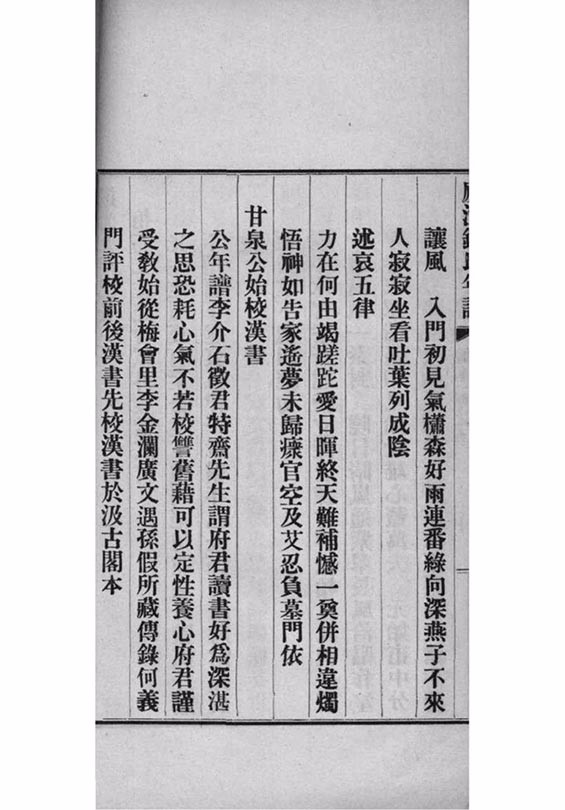 讓風　入門初見氣櫹森好雨連番綠向深燕子不來
人寂寂坐看吐葉列成陰
述哀五律
力在何由竭蹉跎愛日暉終天難補憾一奠併相違燭
悟神如告家遙夢未歸癝官空及艾忍負墓門依
甘泉公始校漢書
公年譜李介石徵君特齋先生謂府君讀書好爲深湛
之思恐耗心氣不若校讐舊藉可以定性養心府君謹
受敎始從梅會里李金瀾廣文遇孫假所藏傳錄何義
門評校前後漢書先校漢書於汲古閣本